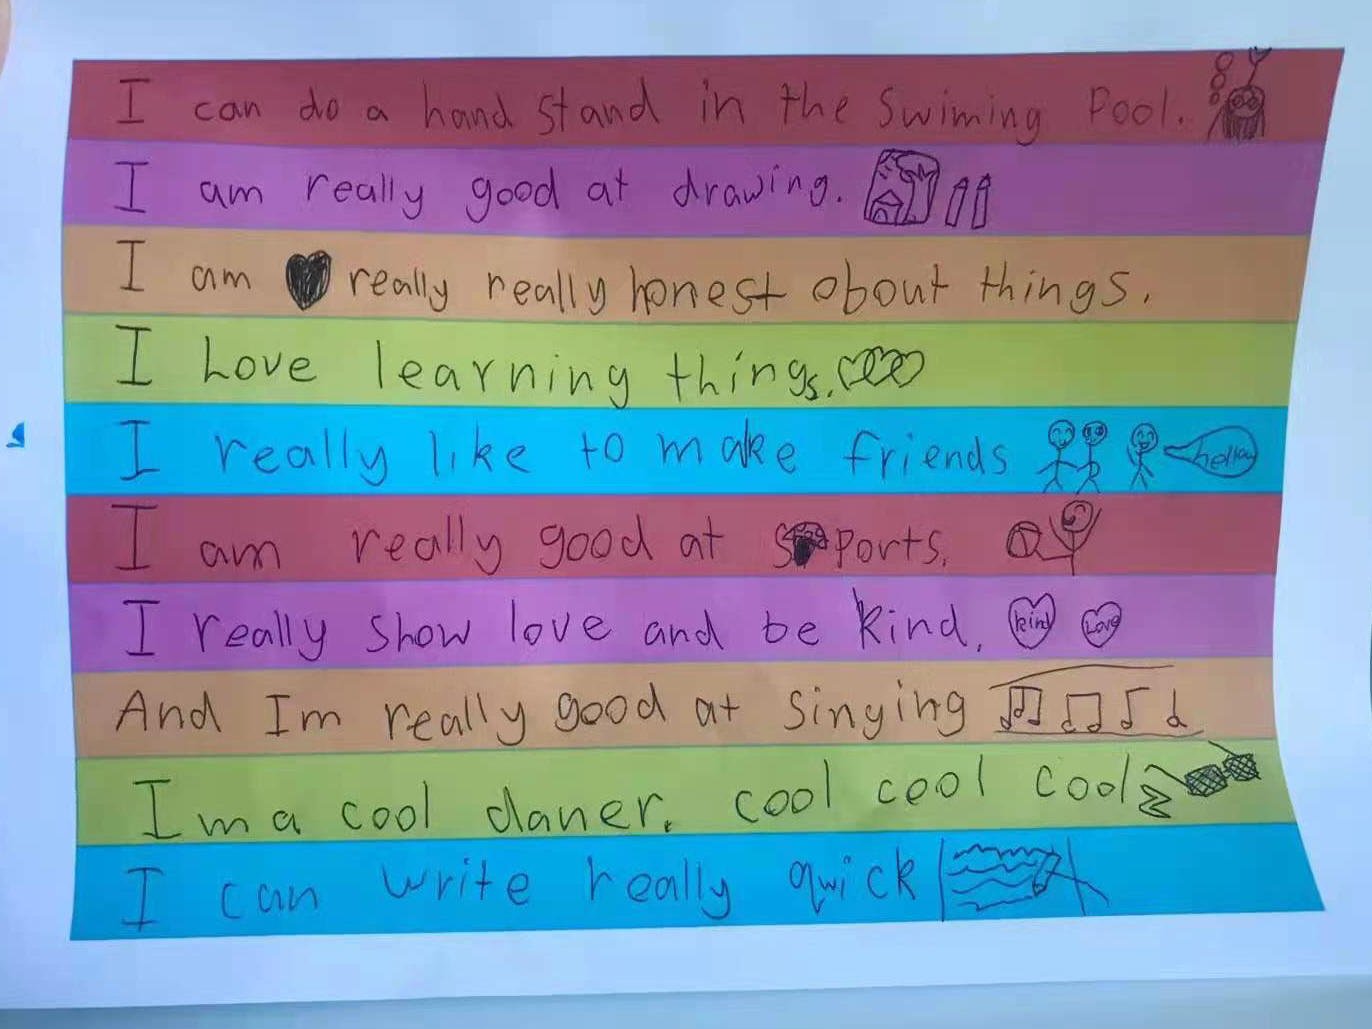 I can do a hand stand in the swiming Pool.
I am really good at drawing.
I am really really honest about things.
I Love learning things.
I really like to make friends hellow
I am really good at sports.
I really show love and be kind. kind Love
And Im really good at sinying
Im a cool daner. cool cool cool
I can write really qwick